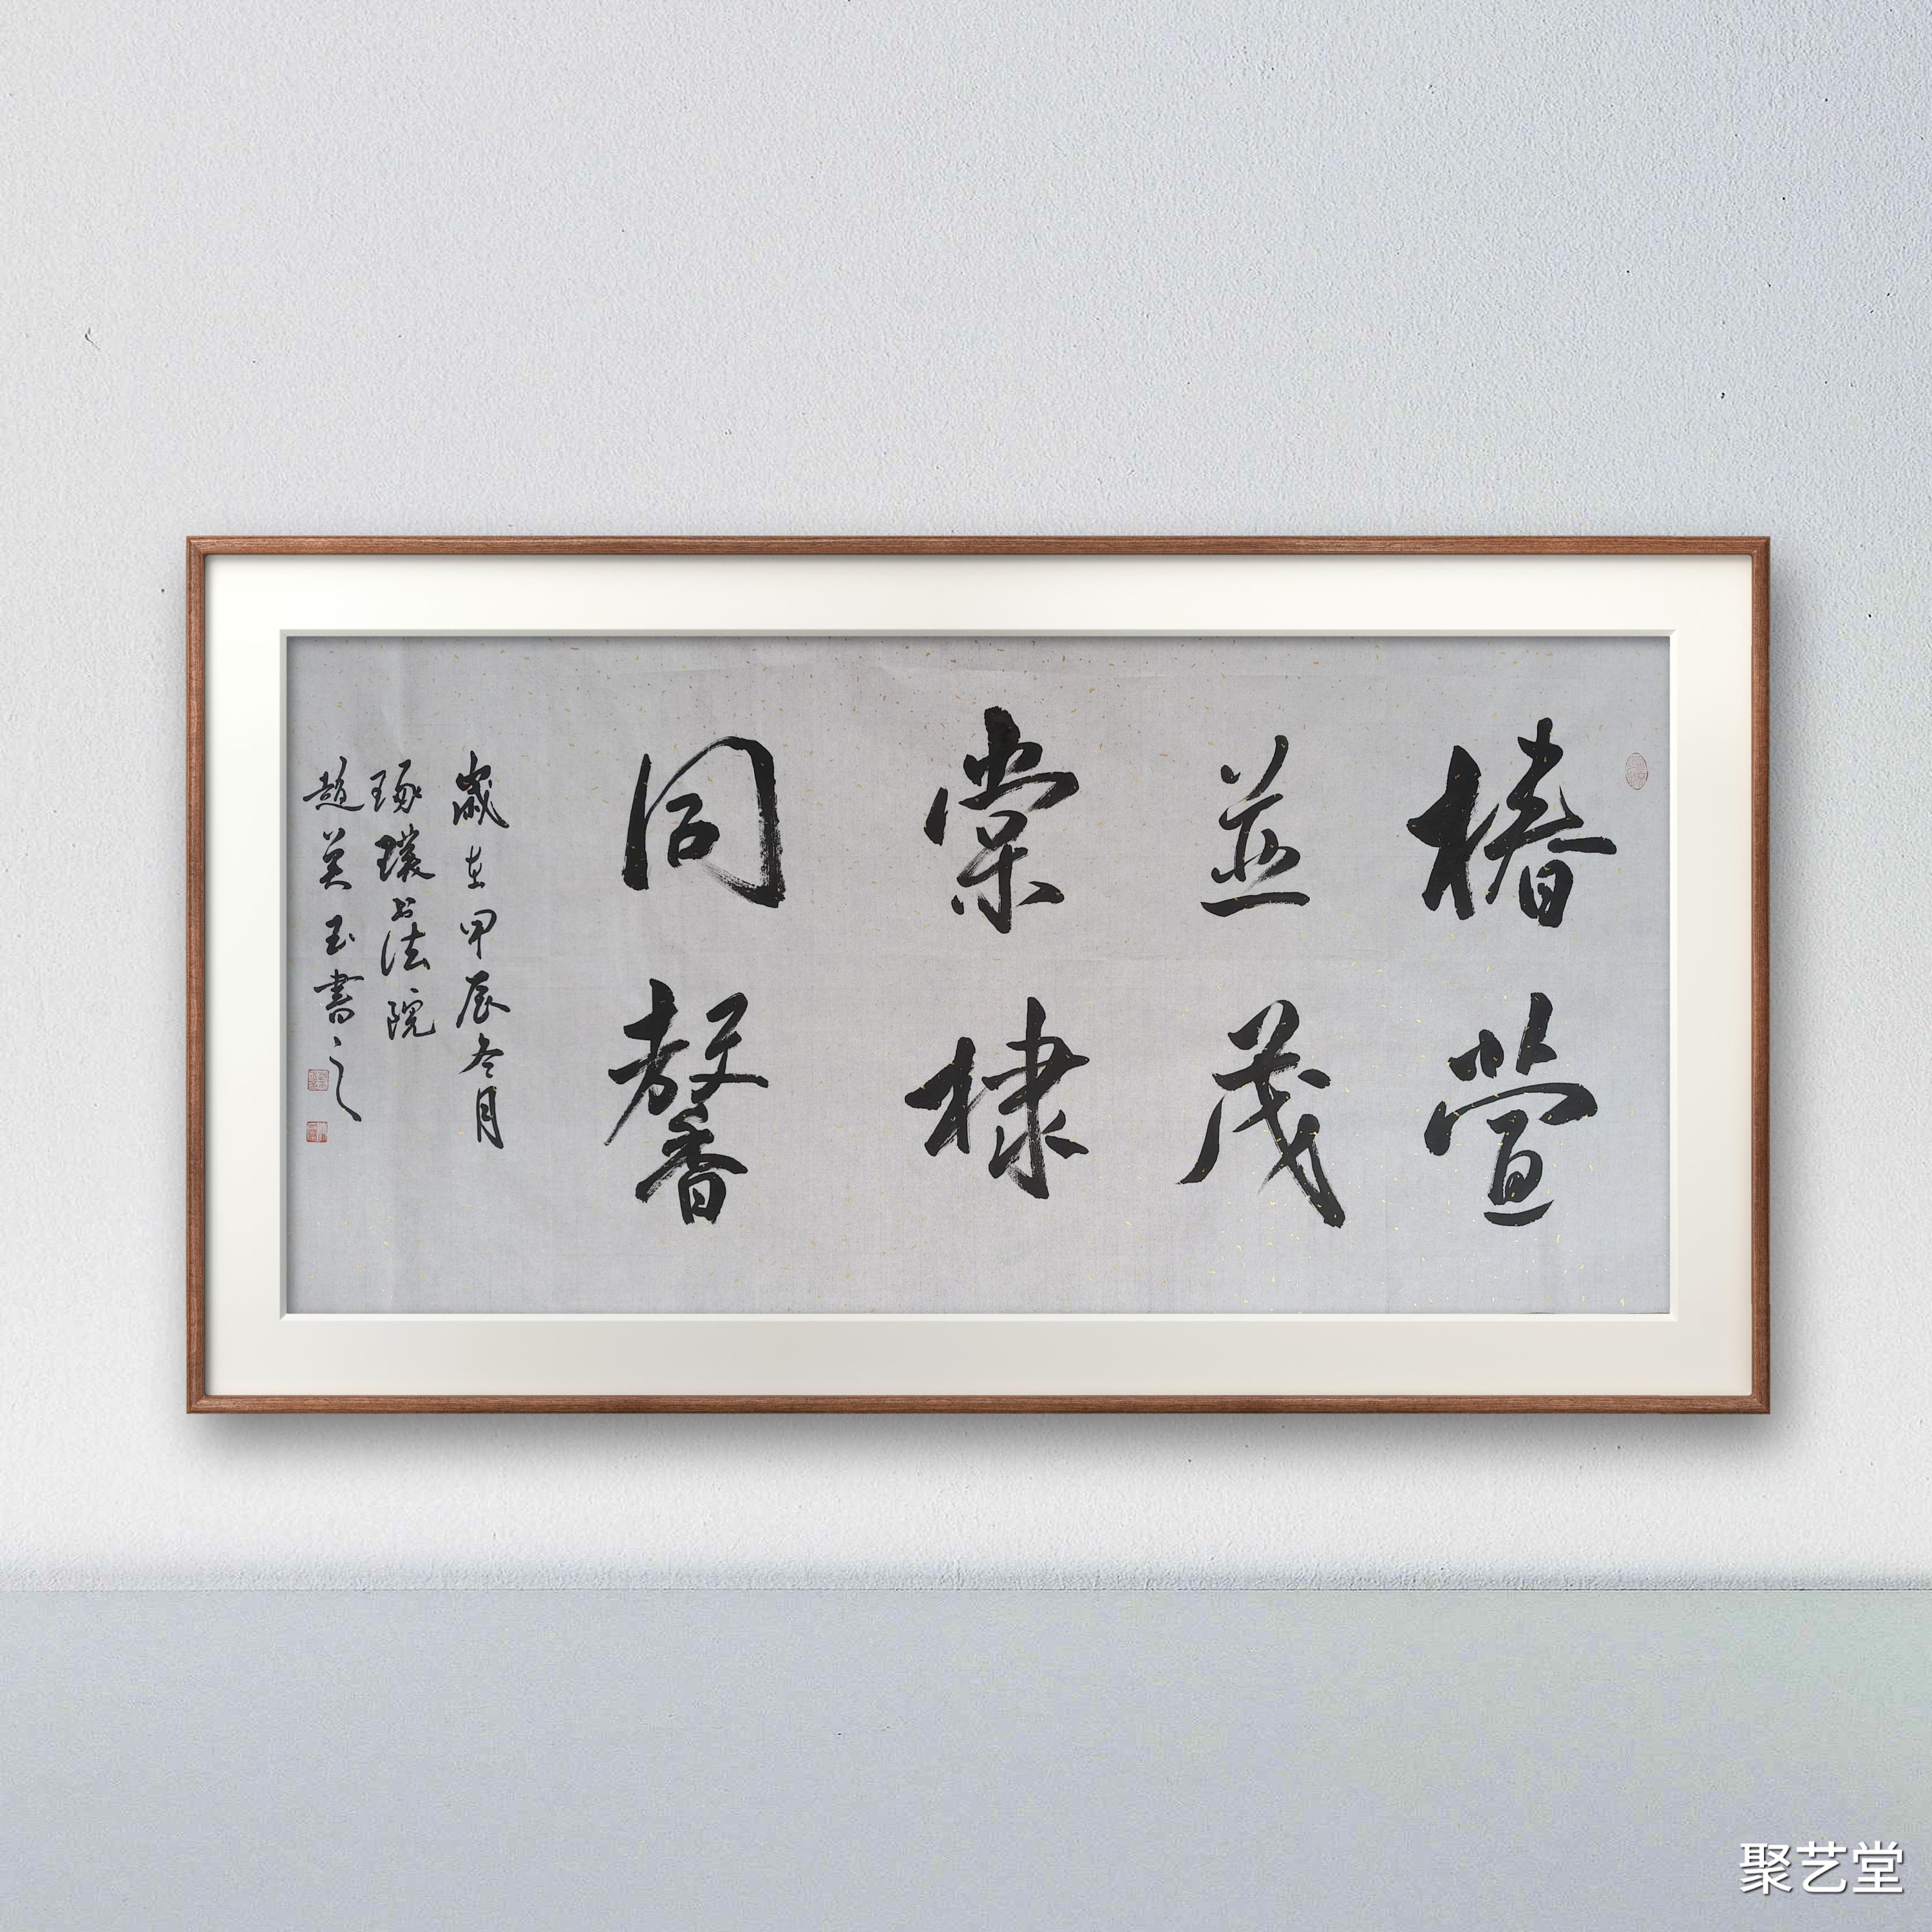 椿萱
並茂
棠棣
同馨
歲在甲辰冬月
琢璞书法院
趙美玉書之
聚艺堂